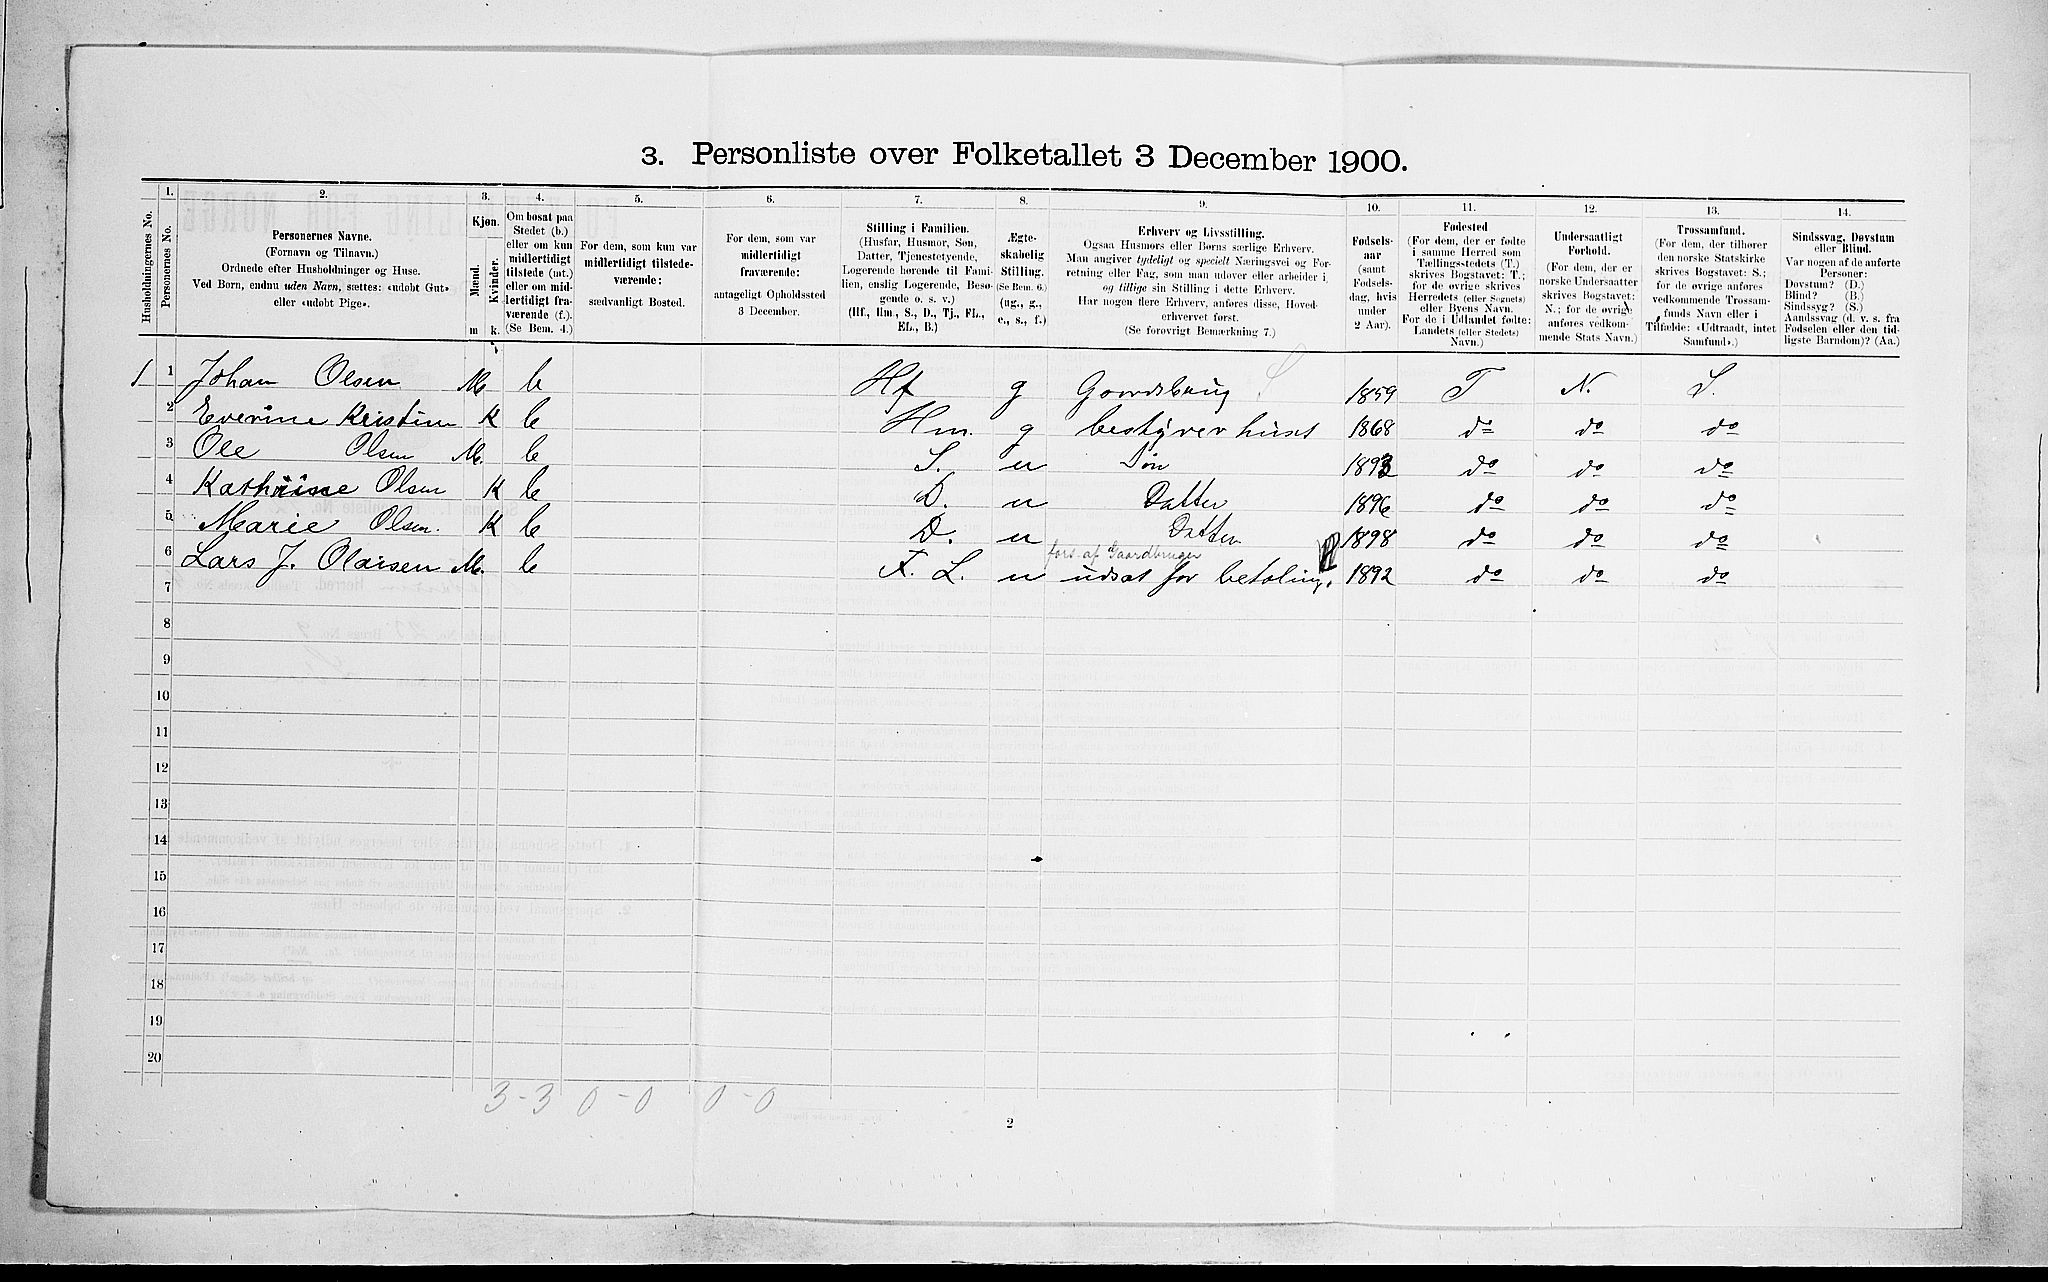 3. Personliste over Folketallet 3 December 1900.
Husholdningernes No.
1.
Personernes No.
2.
Personernes Navne.
(Fornavn og Tilnavn.)
Ordnede efter Husholdninger og Huse.
Ved Børn, endnu uden Navn, sættes: «udøbt Gut»
eller «udøbt Pige».
3.
Kjøn.
Mænd.
Kvinder.
m k.
4.
Om bosat paa
Stedet (b.)
eller om kun
midlertidigt
tilstede (mt.)
eller om mid-
lertidigt fra-
værende (f.).
(Se Bem. 4.)
5.
For dem, som kun var
midlertidigt tilstede-
værende:
sædvanligt Bosted.
6.
For dem, som var
midlertidigt
fraværende:
antageligt Opholdssted
3 December.
7.
Stilling i Familien.
(Husfar, Husmor, Søn,
Datter, Tjenestetyende,
Logerende hørende til Fami-
lien, enslig Logerende, Besø-
gende o. s. v.)
(Hf., Hm., S., D., Tj., FL.,
EL., B.)
8.
Ægte-
skabelig
Stilling.
(Se Bem. 6.)
(ug., g.,
e., s., f.)
9.
Erhverv og Livsstilling.
Ogsaa Husmors eller Børns særlige Erhverv.
Man angiver tydeligt og specielt Næringsvei og For-
retning eller Fag, som man udøver eller arbeider i,
og tillige sin Stilling i dette Erhverv.
Har nogen flere Erhverv, anføres disse, Hoved-
erhvervet først.
(Se forøvrigt Bemærkning 7.)
10.
Fødsels-
aar
(samt
Fødsels-
dag, hvis
under
2 Aar).
11.
Fødested
(For dem, der er fødte
i samme Herred som
Tællingsstedets (T.)
skrives Bogstavet: T.;
for de øvrige skrives
Herredets (eller Sognets)
eller Byens Navn.
For de i Udlandet fødte:
Landets (eller Stedets)
Navn.)
12.
Undersaatligt
Forhold.
(For dem, der er
norske Undersaatter
skrives Bogstavet:
N.; for de øvrige
anføres vedkom-
mende Stats Navn.)
13.
Trossamfund.
(For dem, der tilhører
den norske Statskirke
skrives Bogstavet: S.;
for de øvrige anføres
vedkommende Trossam-
funds Navn eller i
Tilfælde: «Udtraadt, intet
Samfund».)
14.
Sindssvag, Døvstum
eller Blind.
Var nogen af de anførte
Personer:
Døvstum? (D.)
Blind? (B.)
Sindssyg? (S.)
Aandssvag (d. v. s. fra
Fødselen eller den tid-
ligste Barndom)? (Aa.)
1 1 Johan Olsen M. b Hf g Gaardsbrug S 1859 T N. S.
2 Everine Kristine K b Hm. g bestyrer huset 1868 do do do
3 Ole Olsen M. b S. u Søn 1893 do do do
4 Kathrine Olsen K b D. u Datter 1896 do do do
5 Marie Olsen. K b D. u Datter 1898 do do do
fors. af Gaardbruger
6 Lars J. Olaisen M. b F. L. u udsat for betaling. 1892 do do do
7
8
9
10
11
12
13
14
15
16
17
18
19
20
3 - 3 0 - 0 0 - 0
2